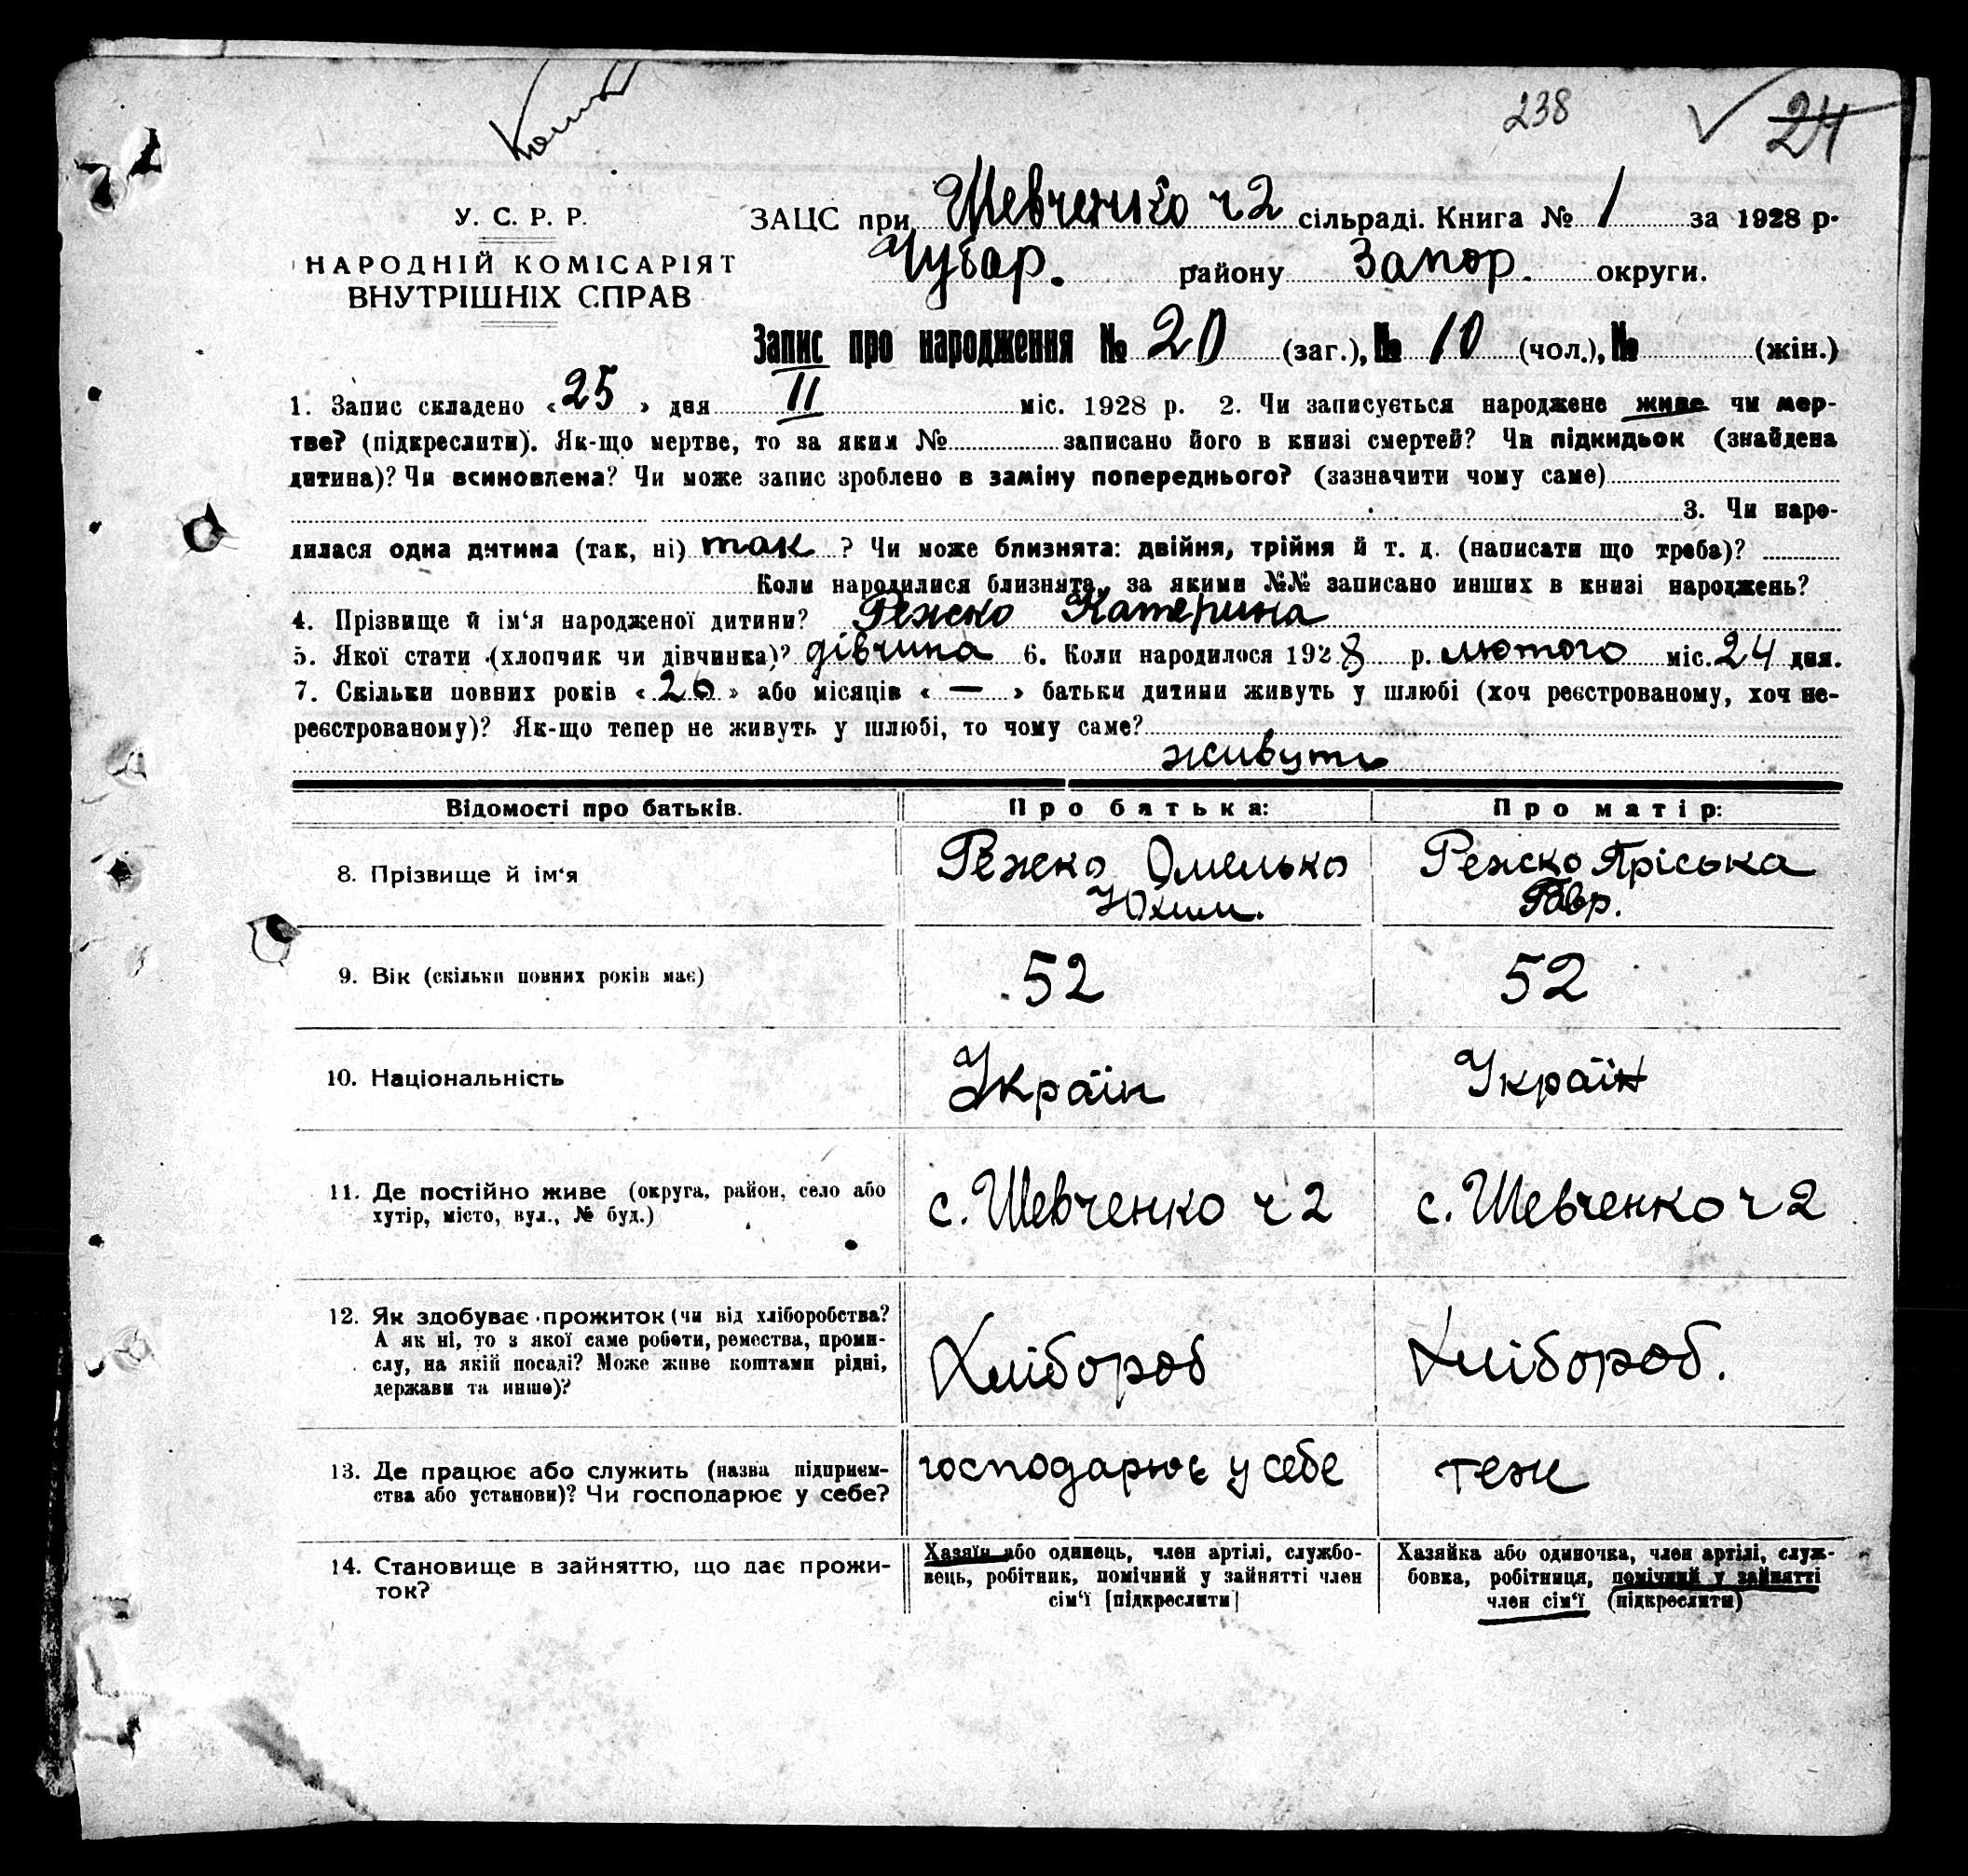 238 24
У. С. Р. Р.
НАРОДНІЙ КОМІСАРІЯТ
ВНУТРІШНІХ СПРАВ
ЗАЦС при Шевченко ч 2 сільраді. Книга № 1 за 1928 р.
Чубар. району Запор. округи.
Запис про народження № 20 (заг.), № 10 (чол.), № (жін.)
1. Запис складено «25» дня II міс. 1928 р. 2. Чи записується народжене живе чи мер-
тве? (підкреслити). Як-що мертве, то за яким № записано його в книзі смертей? Чи підкидьок (знайдена
дитина)? Чи всиновлена? Чи може запис зроблено в заміну попереднього? (зазначити чому саме)
3. Чи наро-
дилася одна дитина (так, ні) так ? Чи може близнята: двійня, трійня й т. д. (написати що треба)?
Коли народилися близнята, за якими №№ записано инших в книзі народжень?
4. Прізвище й ім‘я народженої дитини? Режко Катерина
5. Якої стати (хлопчик чи дівчинка)? дівчина 6. Коли народилося 1928 р. лютого міс. 24 дня.
7. Скільки повних років «26» або місяців «—» батьки дитини живуть у шлюбі (хоч реєстрованому, хоч не-
реєстрованому)? Як-що тепер не живуть у шлюбі, то чому саме?
живуть
Відомості про батьків. Про батька: Про матір:
8. Прізвище й ім‘я Режко Омелько Режско Пріська
Юхим. Гавр.
9. Вік (скільки повних років має) 52 52
10. Національність Україн Україн
11. Де постійно живе (округа, район, село або
хутір, місто, вул., № буд.) с. Шевченко ч 2 с. Шевченко ч 2
12. Як здобуває прожиток (чи від хліборобства?
А як ні, то з якої саме роботи, ремества, проми-
слу, на якій посаді? Може живе коштами рідні,
держави та инше)? Хлібороб Хлібороб.
13. Де працює або служить (назва підприєм-
ства або установи)? Чи господарює у себе? господарює у себе теж
14. Становище в зайняттю, що дає прожи-
ток?
Хазяїн або одинець, член артілі, службо-
вець, робітник, помічний у зайнятті член
сім‘ї [підкреслити]
Хазяйка або одиночка, член артілі, служ-
бовка, робітниця, помічний у зайнятті
член сім‘ї (підкреслити)